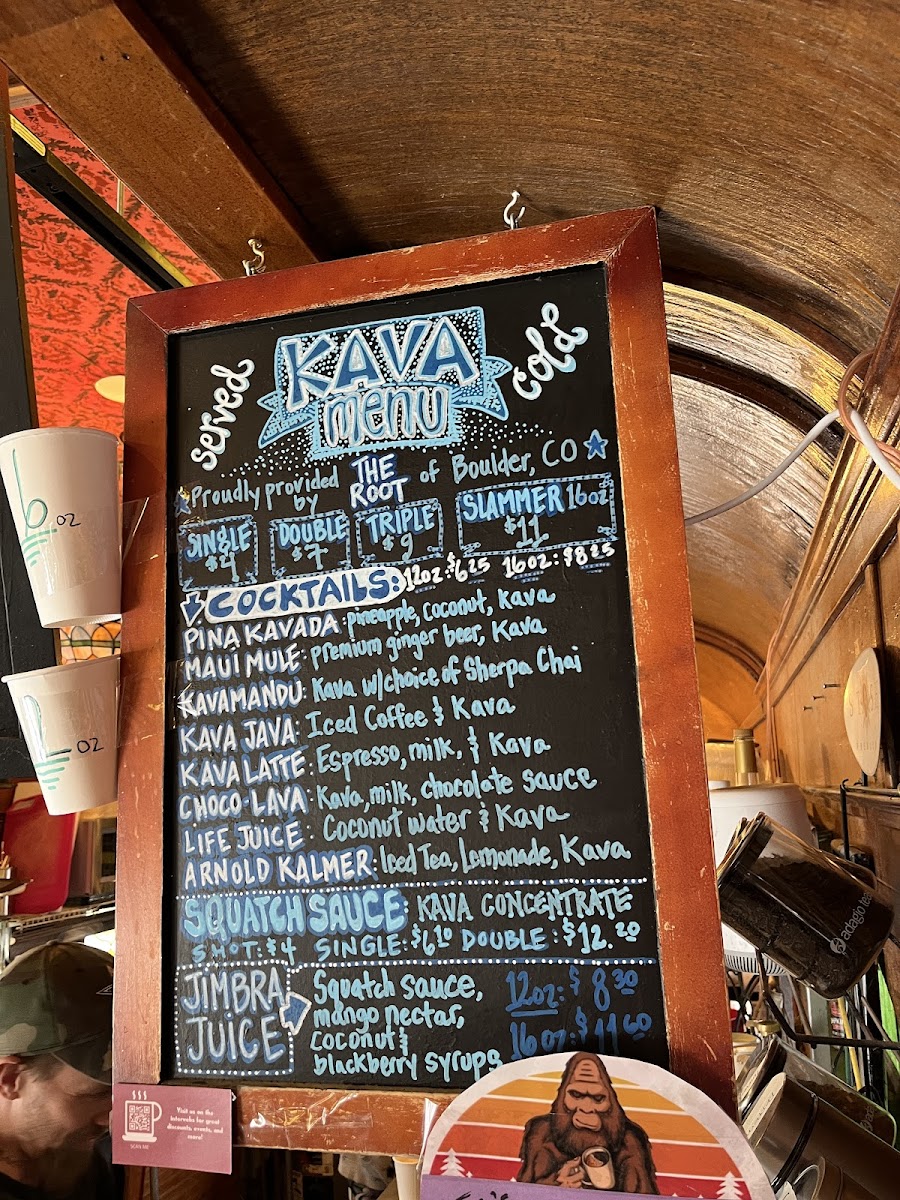 served
KAVA
menu
cold
Proudly provided by THE ROOT of Boulder, CO
SINGLE $4
DOUBLE $7
TRIPLE $9
SLAMMER 16oz $11
COCKTAILS: 12oz: $6.25 16oz: $8.25
PINA KAVADA: pineapple, coconut, kava
MAUI MULE: premium ginger beer, Kava
KAVAMANDU: Kava w/choice of Sherpa Chai
KAVA JAVA: Iced Coffee & Kava
KAVA LATTE: Espresso, milk, & Kava
CHOCO-LAVA: Kava, milk, chocolate sauce
LIFE JUICE: Coconut water & Kava
ARNOLD KALMER: Iced Tea, Lemonade, Kava
SQUATCH SAUCE: KAVA CONCENTRATE
SHOT: $4 SINGLE: $6.10 DOUBLE: $12.20
JIMBRA JUICE
Squatch sauce,
mango nectar,
coconut &
blackberry syrups
12oz: $8.30
16oz: $11.60
oz
oz
adagio teas
Visit us on the
interwebs for great
discounts, events, and
more!
SCAN ME